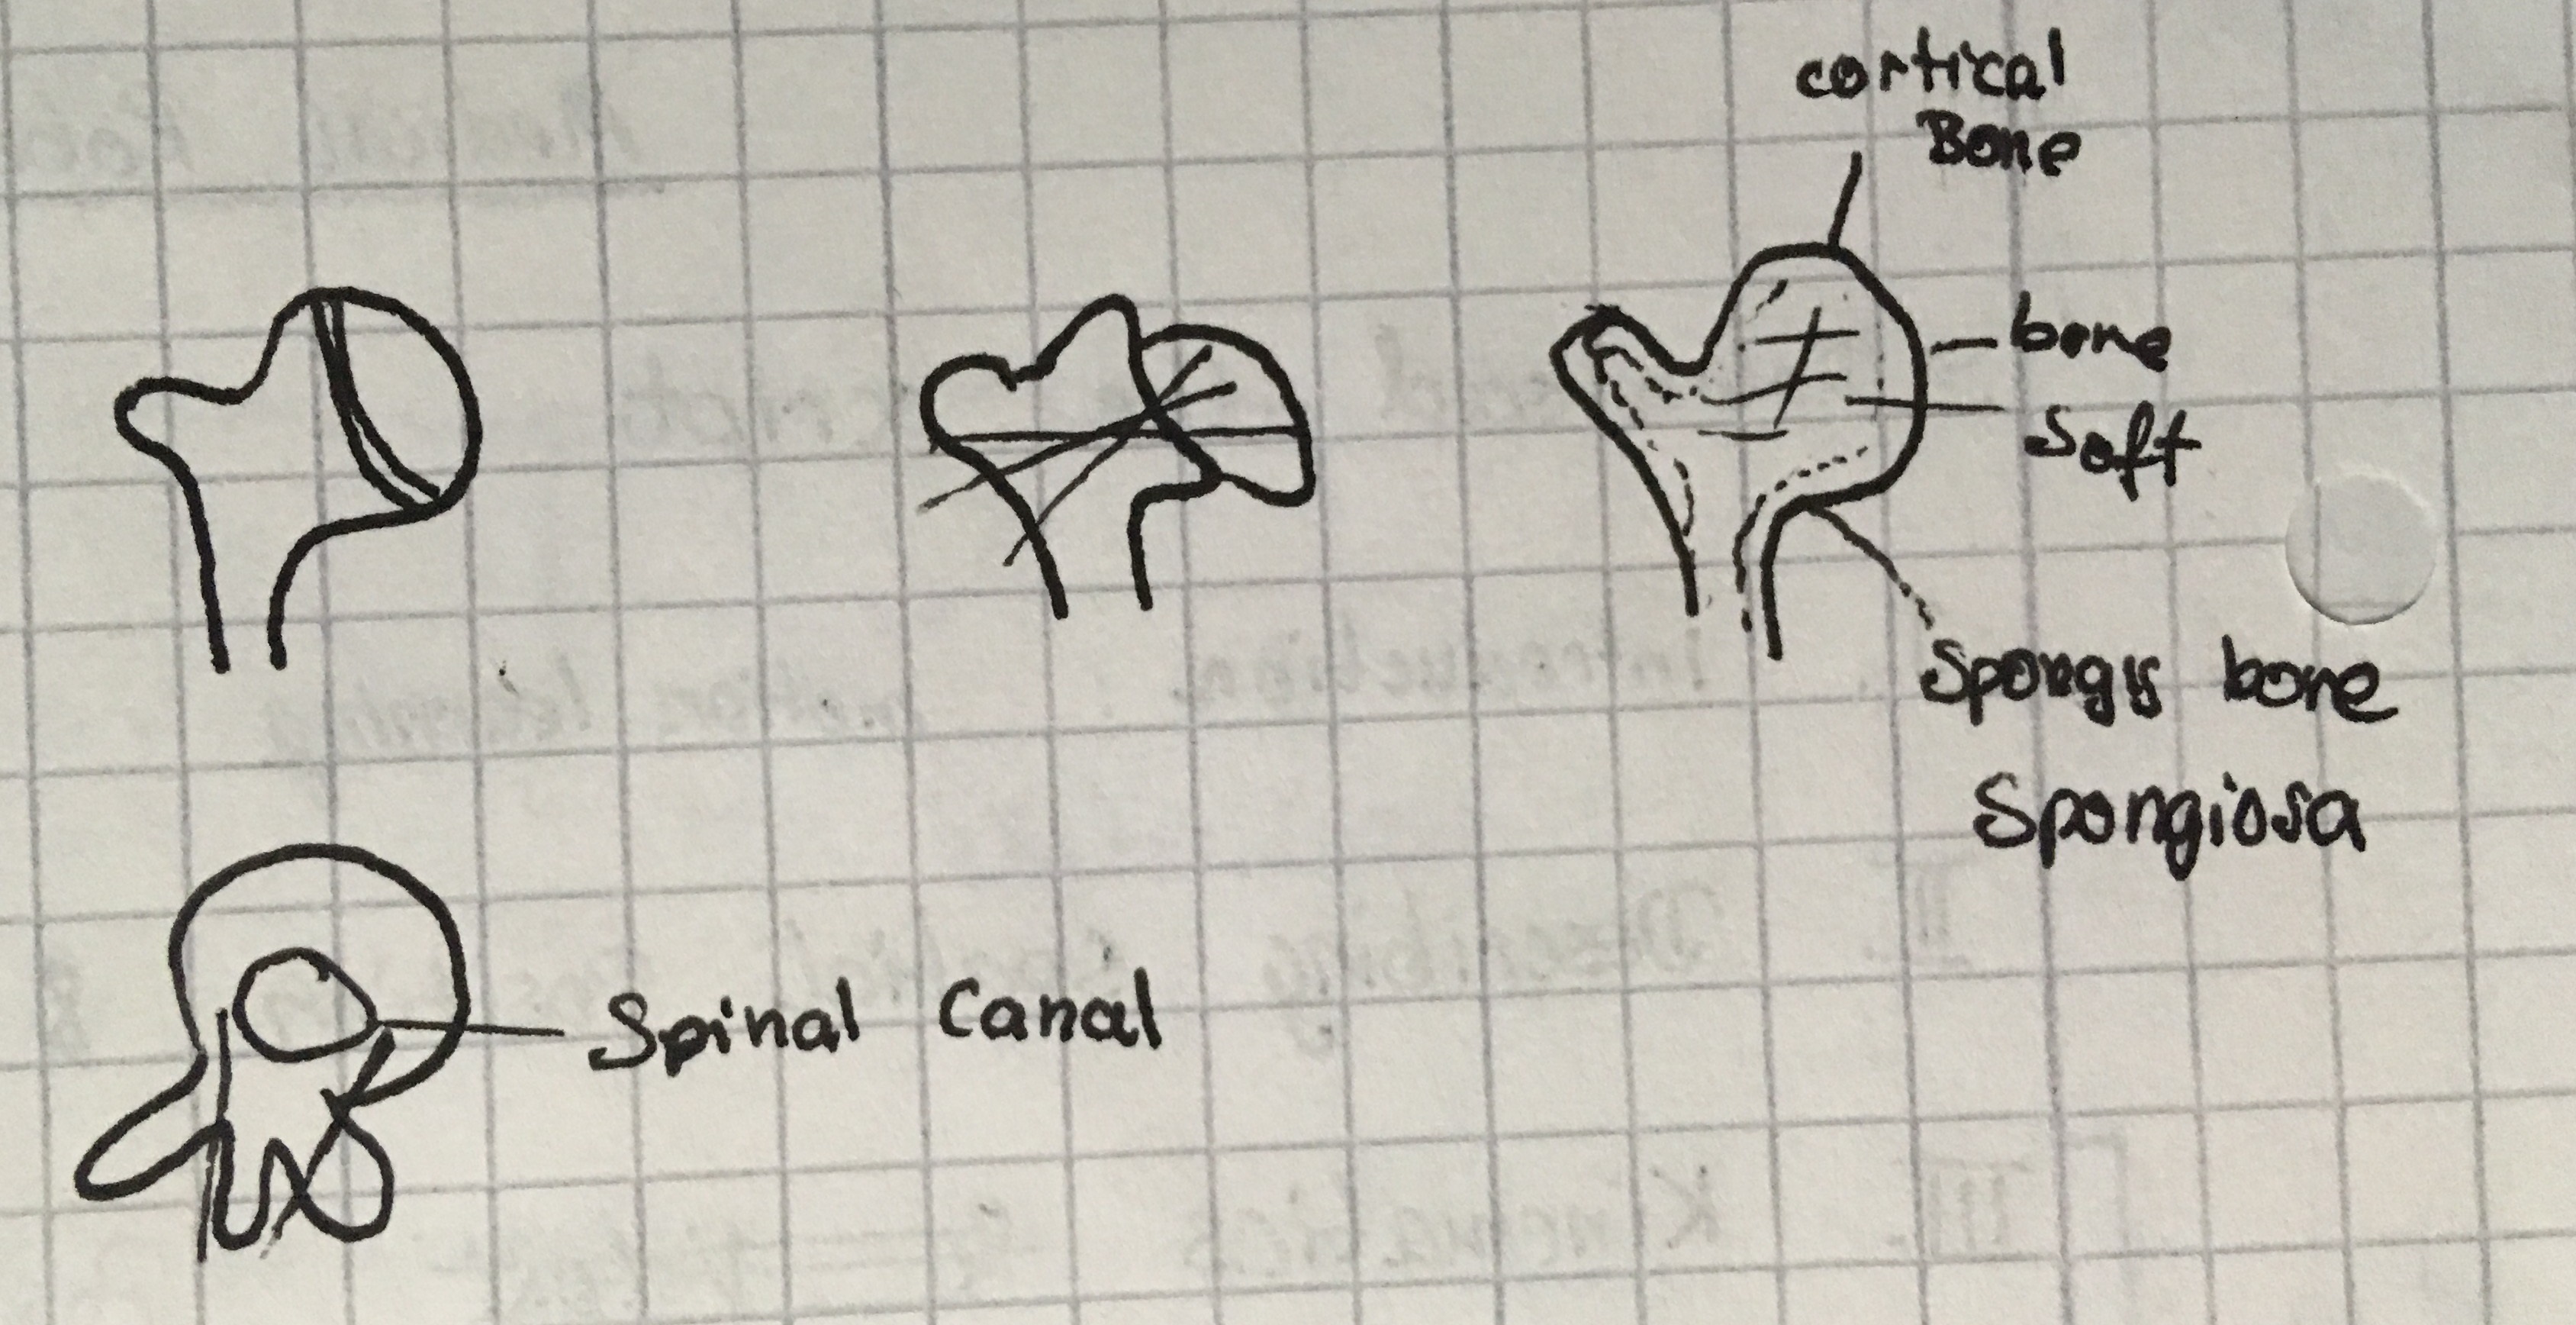 cortical
Bone
bone
soft
Spongy bone
Spongiosa
Spinal Canal